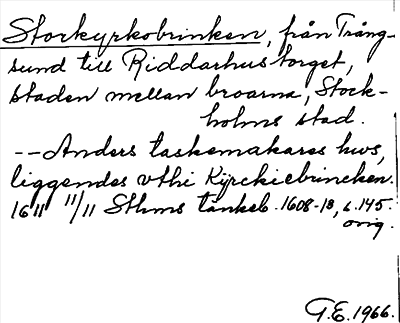 Storkyrkobrinken, från Trång-
sund till Riddarhustorget,
staden mellan broarna, Stock-
holms stad.
-- Anders taskemakares hws,
liggendes vthi Kÿrckiebrincken.
1611 11/11 Sthms tänkeb. 1608-18, s. 145.
orig.
G.E. 1966.